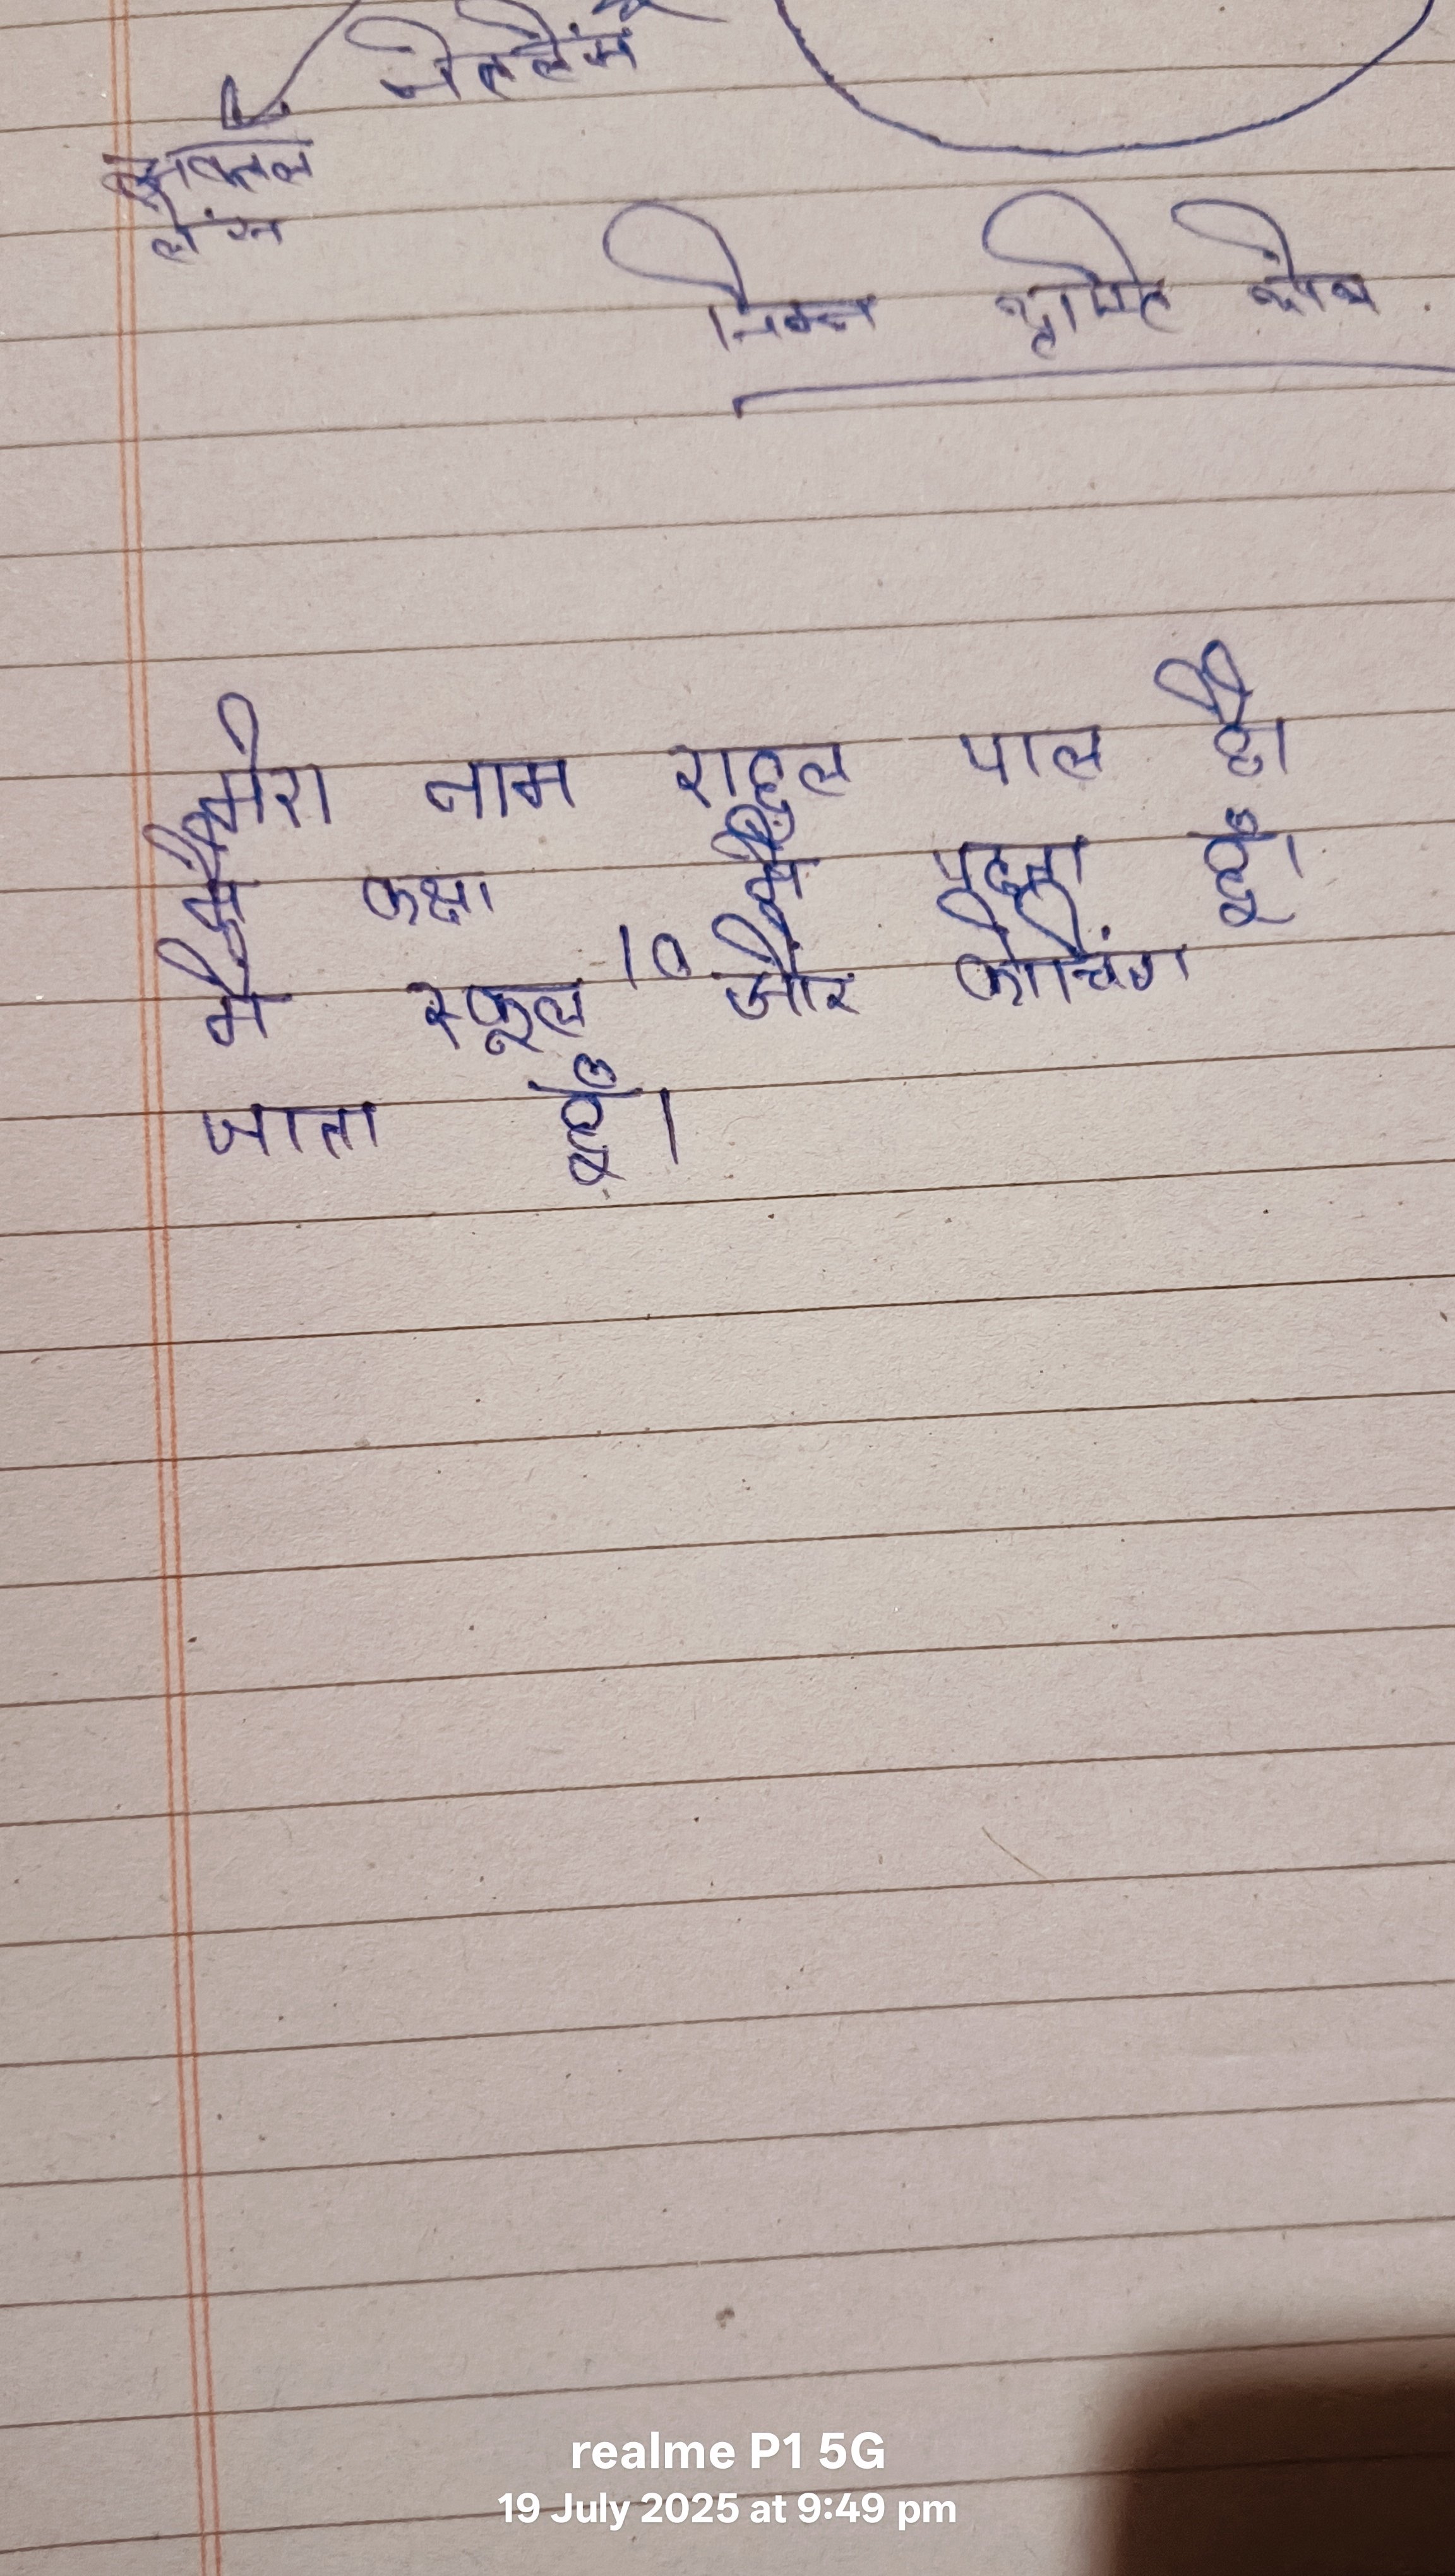 नेत्र लेंस
लेंस
मेरा नाम राहुल पाल है।
मैं कक्षा 10 में पढ़ता हूँ।
मै स्कूल और कोचिंग
जाता हूँ।
realme P1 5G
19 July 2025 at 9:49 pm